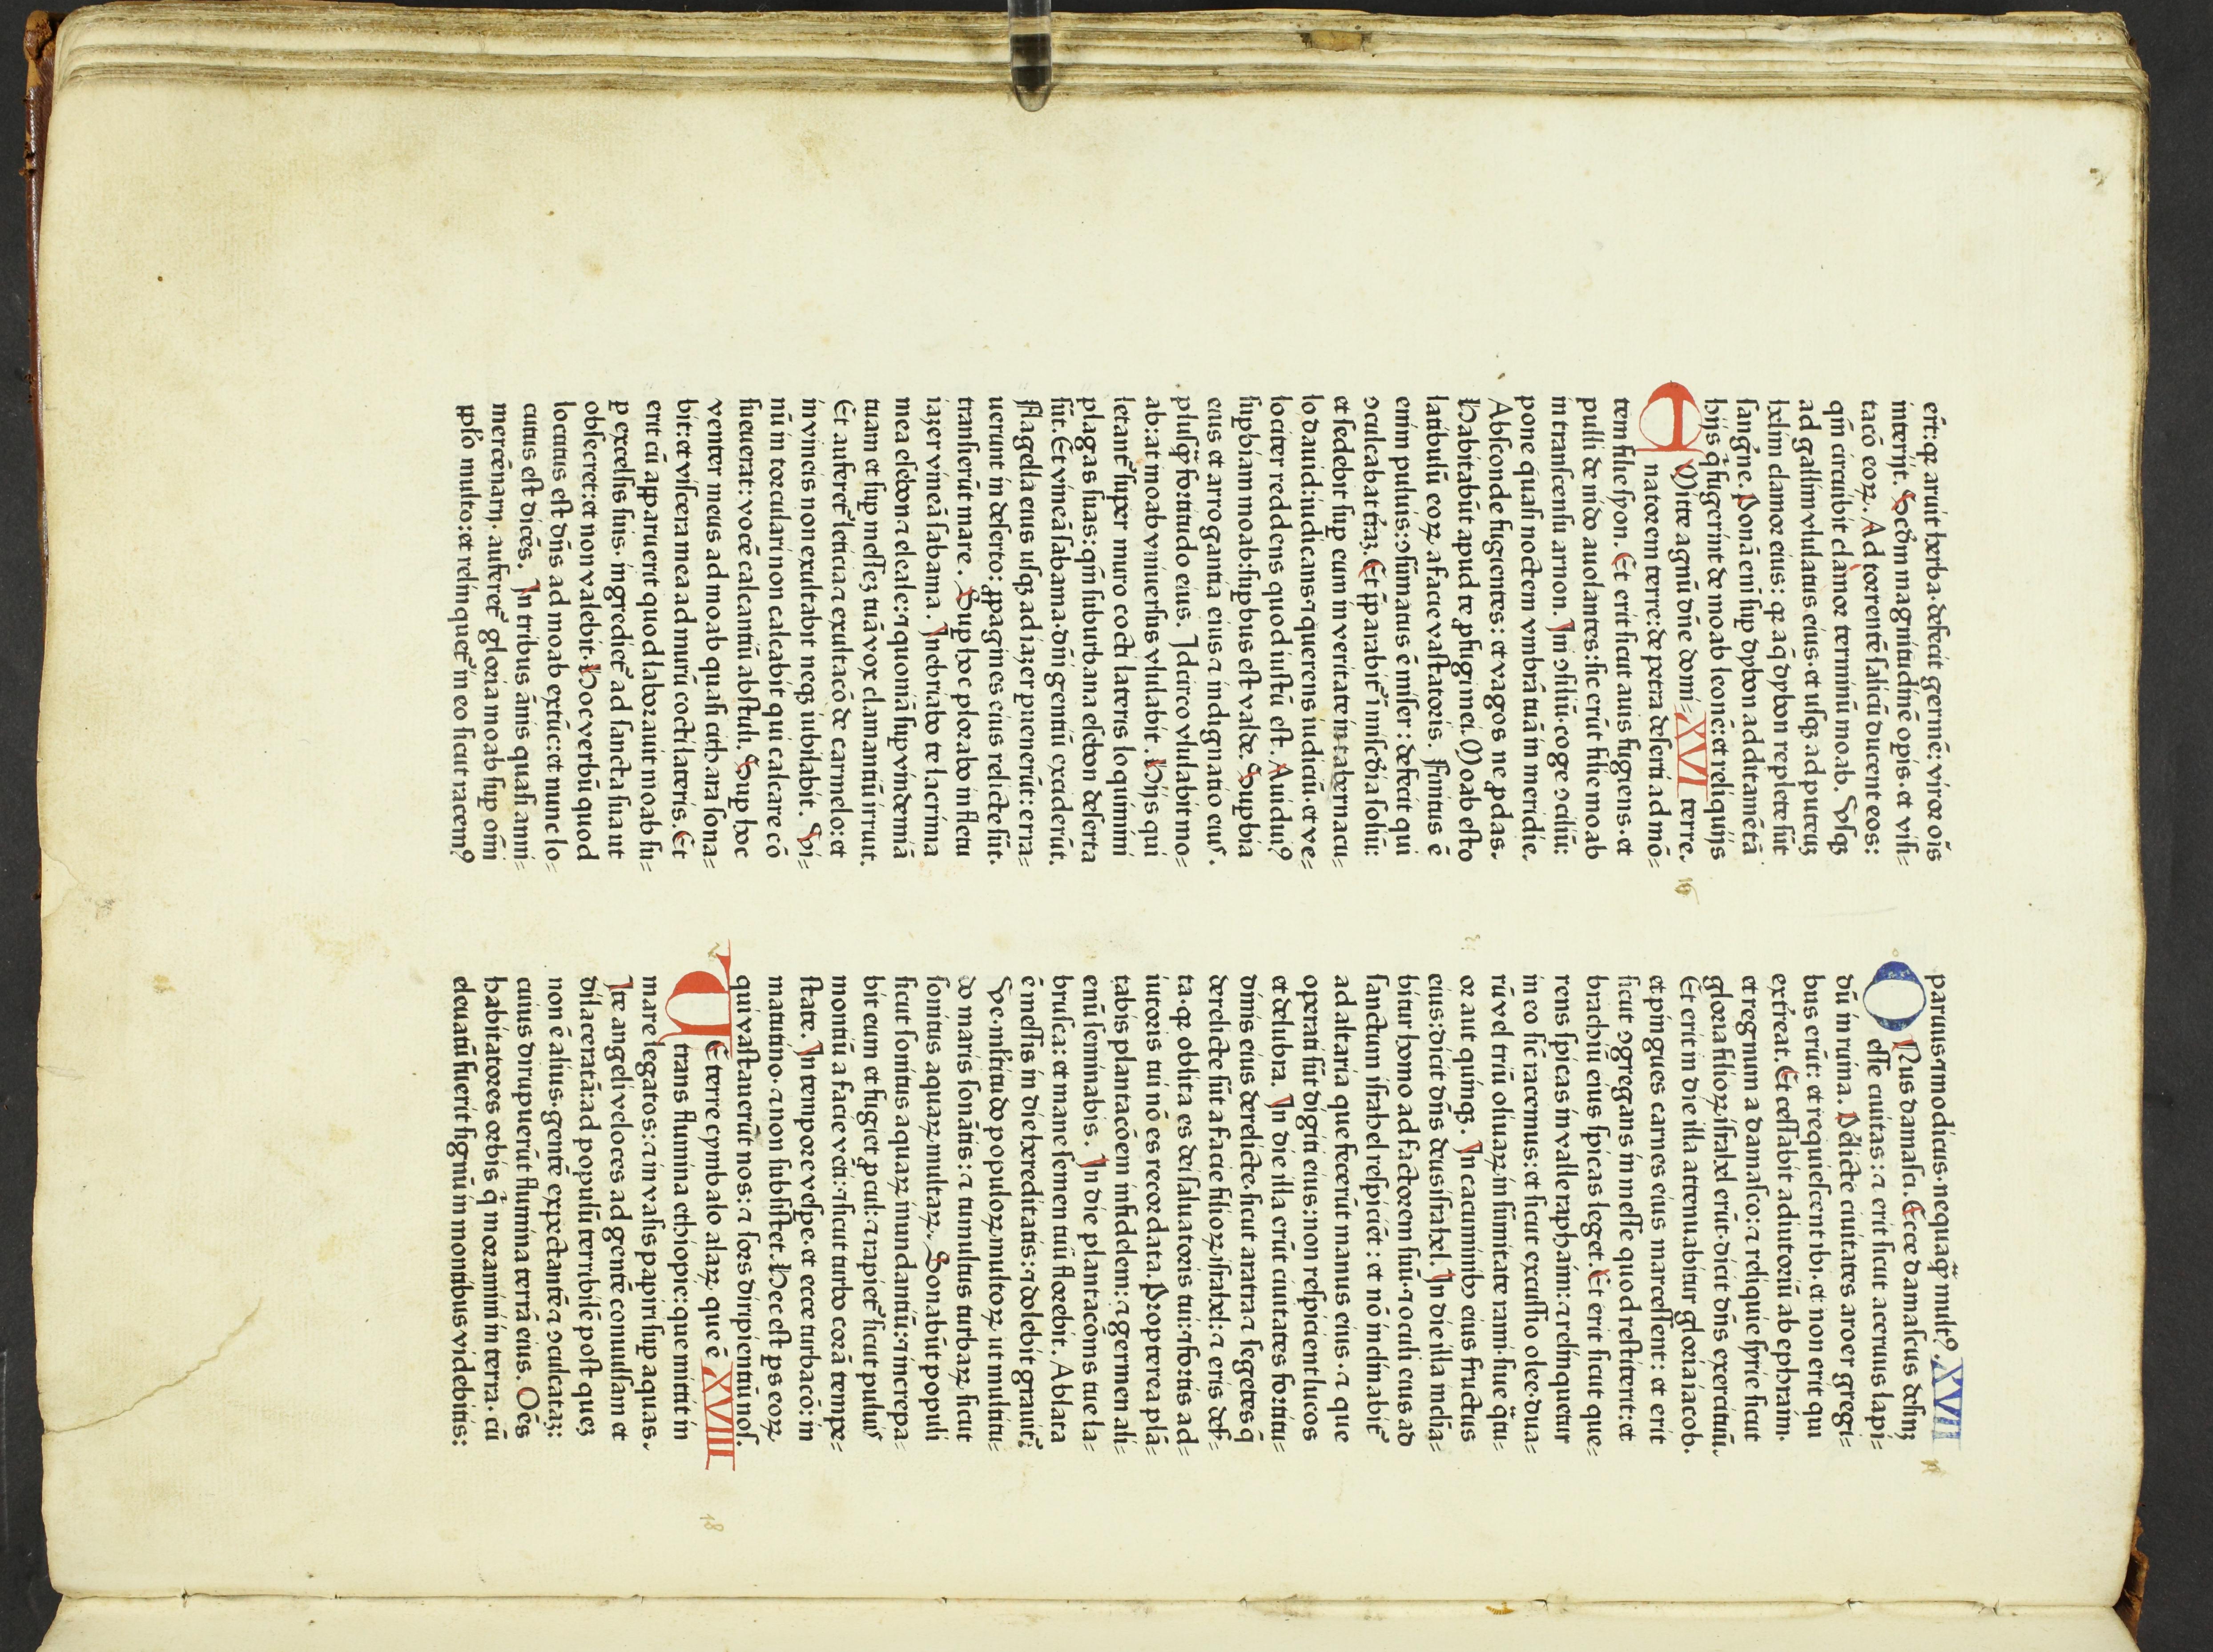 erūt: qꝛ aruit herba· defecit germē: viror oīs
interijt. Scďm magnitudinē opis· et visi⸗
tacō eoꝝ. Ad torrentē salicū ducent eos:
qm̄ circuibit clamor terminū moab. Vsqꝫ
ad gallim vlulatus eius· et usqꝫ ad puteuꝫ
helim clamor eius: qꝛ aq̄ dybon replete sūt
sang̓ne. Ponā eni̅ sup dybon additamētā
hijs q̓ fugerint de moab leonē: et reliquijs
Mitte agnū dn̄e domi⸗ XVI terre.
natorem terre: de petra deserti ad mō⸗
tem filie syon. Et erit sicut auis fugiens· et
pulli de nido auolantes: sic erūt filie moab
in transcensu arnon. Ini ɔsiliū· coge ɔciliū:
pone quasi noctem vmbrā tuā in meridie.
Absconde fugientes: et vagos ne ꝓdas.
Habitabūt apud te ꝓfugi mei. Moab esto
latibulū eoꝝ a facie vastatoris. Finitus ē
enim puluis: ɔsūmatus ē miser: defecit qui
ɔculcabat t̓raꝫ. Et p̄parabit᷑ in mīscďia soliū:
et sedebit sup eum in veritate in tabernacu⸗
lo dauid: iudicans ⁊ querens iudiciū· et ve⸗
lociter reddens quod iustū est. Audiuiꝰ
supbiam moab: supbus est valde. Supbia
eius et arrogantia eius ⁊ indignatio eiuˢ.
plusq̄ȝ fortitudo eius. Idcirco vlulabit mo⸗
ab: at moab vniuersus vlulabit. Hijs qui
letant᷑ super muro cocti lateris loquimini
plagas suas: qm̄ suburbana esebon deserta
sūt. Et vineā sabama· dn̄i gentiū exciderūt.
Flagella eius usqꝫ ad iazer puenerūt: erra⸗
uerunt in deserto: ꝓpagines eius relicte sūt.
transierūt mare. Sup hoc plorabo in fletu
iazer vineā sabama. Inebriabo te lacrima
mea esebon ⁊ eleale: ⁊ quoniā sup vindemiā
tuam et sup messeꝫ tuā vox clamantiū irruit.
Et auferet᷑ leticia ⁊ exultacō de carmelo: et
in vineis non exultabit neqꝫ iubilabit. Vi⸗
nū in torculari non calcabit qui calcare cō
sueuerat: vocē calcantiū abstuli. Sup hoc
venter meus ad moab quasi cithara sona⸗
bit: et viscera mea ad murū cocti lateris. Et
erit cū apparuerit quod laborauit moab su⸗
p excelsis suis· ingrediet᷑ ad sancta sua ut
obsecret: et non valebit. Hoc verbū quod
locutus est dn̄s ad moab extūc: et nunc lo⸗
cutus est dicēs. In tribus āmis quasi anni⸗
mercēnarij. auferet᷑ gloria moab sup om̄i
ppl̄o multo: et relinquet᷑ in eo sicut racemꝰ
paruus ⁊ modicus· nequaq̄ȝ multꝰ. XVII
Onus damasci. Ecce damascus desinꝫ
esse ciuitas: ⁊ erit sicut aceruus lapi⸗
dū in ruina. Delicte ciuitates aroer gregi⸗
bus erūt: et requiescent ibi· et non erit qui
ext̓reat. Et cessabit adiutoriū ab ephraim·
et regnum a damasco: ⁊ reliquie syrie sicut
gloria filioꝝ israhel erūt· dicit dn̄s exercituū.
Et erit in die illa attenuabitur gloria iacob.
et pingues carnes eius marcessent: et erit
sicut ɔgregans in messe quod restiterit: et
brachiū eius spicas leget. Et erit sicut que⸗
rens spicas in valle raphaim: ⁊ relinquetur
in eo sic̄ racemus: et sicut excussio olee· dua⸗
rū vel triū oliuaꝝ in sūmitate rami· siue q̄tu⸗
or aut quinqꝫ. In cacuminibȝ eius fructus
eius: dicit dn̄s deus israhel. In die illa inclīa⸗
bitur homo ad factorem suū· ⁊ oculi eius ad
sanctum israhel respiciēt: et nō inclinabit᷑
ad altaria que fecerūt manus eius· ⁊ que
operati sūt digiti eius: non respicient lucos
et delubra. In die illa erūt ciuitates fortitu⸗
dinis eius derelicte· sicut aratra ⁊ segetes q̄
derelicte sūt a facie filioꝝ israhel: ⁊ eris def⸗
ta· qꝛ oblita es dei saluatoris tui: ⁊ fortis ad⸗
iutoris tui nō es recordata. Propterea plā⸗
tabis plantacōem infidelem: ⁊ germen ali⸗
enū seminabis. In die plantacōnis tue la⸗
brusca: et mane semen tuū florebit. Ablata
ē messis in die hereditatis: ⁊ dolebit grauit᷑.
Ve· ml̄titudo populoꝝ multoꝝ ut multitu⸗
do maris sonātis: ⁊ tumultus turbaꝝ sicut
sonitus aquaꝝ multaꝝ. Sonabūt populi
sicut sonitus aquaꝝ inundantiū: ⁊ increpa⸗
bit eum et fugiet ꝓcul: ⁊ rapiet᷑ sicut puluiˢ
montiū a facie vēti: ⁊ sicut turbo corā tempe⸗
state. In tempore vespe· et ecce turbacō: in
matutino· ⁊ non subsistet. Hec est ps eoꝝ
qui vastauerūt nos: ⁊ sors diripientiū noˢ.
Ve terre cymbalo alaꝝ que ē XVIII
trans flumina ethiopie: que mittit in
mare legatos: ⁊ in vasis papiri sup aquas.
Ite angeli veloces ad gentē conuulsam et
dilaceratā: ad populū terribilē post queꝫ
non ē alius· gentē expectantē ⁊ ɔculcataꝫ:
cuius dirupuerūt flumina terrā eius. Oēs
habitatores orbis q̓ moramini in terra· cū
eleuatū fuerit signū in montibus videbitis:
16
18